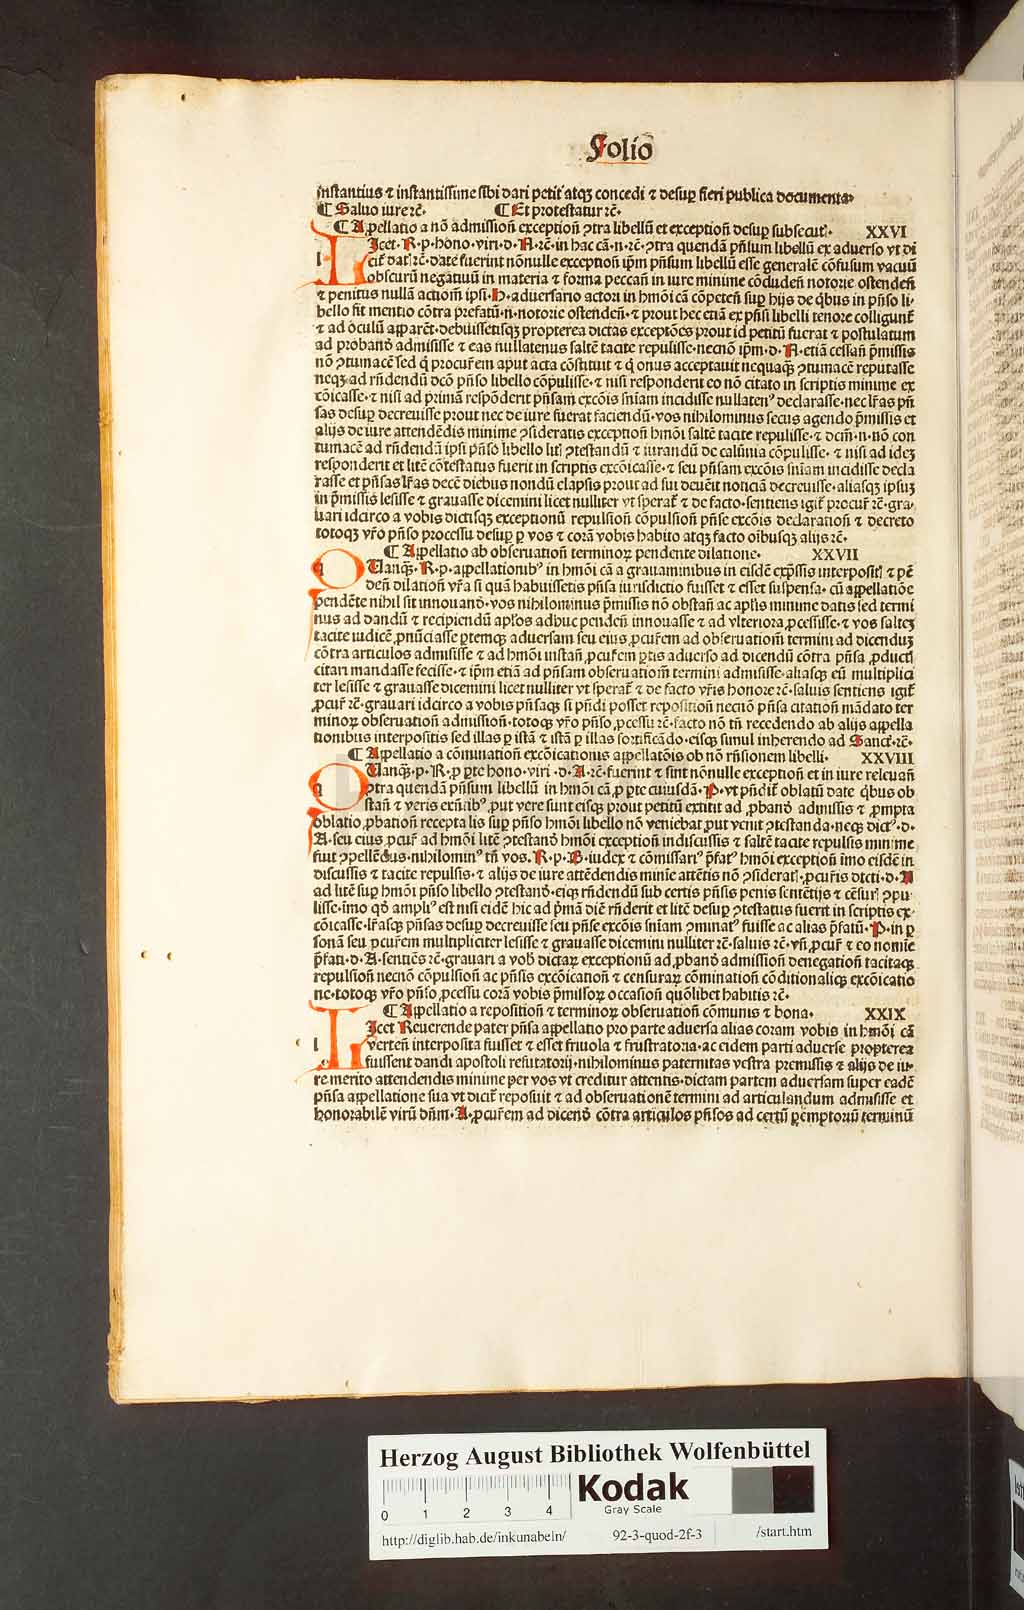 Folio
instantius ⁊ instantissime sibi dari petit atqʒ concedi ⁊ desuꝑ fieri publica documenta·
¶ Saluo iure ⁊c̄· ¶ Et protestatur ⁊c̄·
¶ Appellatio a nō admissioñ exceptioñ ꝯtra libellū et exceptioñ desuꝑ subsecut· XXVI
LIcet·R·p·hōno·viri·d·A·⁊c̄·in hac cā·n·⁊c̄·ꝯtra quendā pñsum libellū ex aduerso vt di
cit dat ⁊c̄·date fuerint nōnulle exceptioñ ip̄m pñsum libellū esse generalē cōfusum vacuū
obscurū negatiuū in materia ⁊ forma peccañ in iure minime cōcludeñ notorie ostendeñ
⁊ penitus nullā actiom̄ ipsi·H·aduersario actori in hmōi cā cōpeteñ suꝑ hijs de q̄bus in pñso li·
bello fit mentio cōtra prefatū·n·notorie ostendeñ·⁊ prout hec etiā ex pñsi libelli tenore colligunt̄
⁊ ad ocūlū apparēt·debuissetisqʒ propterea dictas exceptōes prout id petitū fuerat ⁊ postulatum
ad probanō admisisse ⁊ eas nullatenus saltē tacite repulisse·necnō ip̄m·d·A·etiā cessañ p̄missis
nō ꝯtumacē sed q̄ procur̄em aput acta cōstituit ⁊ q̄ onus acceptauit nequaqʒ ꝯtumacē reputasse
neqʒ ad rñdendū dcō pñso libello cōpulisse·⁊ nisi responderit eo nō citato in scriptis minime ex
cōicasse·⁊ nisi ad primā respōderit pñsam excōis sniam incidisse nullatenꝰ declarasse·nec lr̄as pñ
sas desuꝑ decreuisse prout nec de iure fuerat faciendū·vos nihilominus secus agendo p̄missis et
alijs de iure attendēdis minime ꝯsideratis exceptioñ hmōi saltē tacite repulisse·⁊ dcm̄·n·nō con
tumacē ad rñdendū ipsi pñso libello lit ꝯtestandū ⁊ iurandū de calūnia cōpulisse·⁊ nisi ad ideʒ
responderit et litē cōtestatus fuerit in scriptis excōicasse·⁊ seu pñsam excōis sniam incidisse decla
rasse et pñsas lr̄as decē diebus nondū elapsis prout ad sui deuēit noticiā decreuisse·aliasqʒ ipsuʒ
in p̄missis lesisse ⁊ grauasse dicemini licet nulliter vt sperat̄ ⁊ de facto·sentiens igit̄ procur̄ ⁊c̄·gra·
uari idcirco a vobis dictisqʒ exceptionū repulsioñ cōpulsioñ pñse excōis declaratioñ ⁊ decreto
totoqʒ vr̄o pñso processu desuꝑ ꝑ vos ⁊ corā vobis habito atqʒ facto oībusqʒ alijs ⁊c̄·
¶ Appellatio ab obseruatioñ terminoꝝ pendente dilatione· XXVII
QUanqʒ·R·p·appellationibꝰ in hmōi cā a grauaminibus in eisdē exp̄ssis interposit ⁊ pē
deñ dilatioñ vr̄a si quā habuissetis pñsa iurisdictio fuisset ⁊ esset suspensa· cū appellatiōe
pendēte nihil sit innouanō·vos nihilominus p̄missis nō obstañ ac apl̄is minime datis sed termi
nus ad dandū ⁊ recipiendū apl̄os adhuc pendeñ innouasse ⁊ ad vlteriora ꝓcessisse·⁊ vos salteʒ
tacite iudicē ꝓnūciasse ꝑtemqʒ aduersam seu eius ꝓcur̄em ad obseruatiom̄ termini ad dicenduʒ
cōtra articulos admisisse ⁊ ad hmōi instañ ꝓcur̄em ꝑtis aduerso ad dicendū cōtra pñsa ꝓduct
citari mandasse fecisse·⁊ ip̄m etiā ad pñsam obseruatiom̄ termini admisisse·aliasqʒ eū multiplici
ter lesisse ⁊ grauasse dicemini licet nulliter vt sperat̄ ⁊ de facto vr̄is honore ⁊c̄·saluis sentiens igit̄
ꝓcur̄ ⁊c̄·grauari idcirco a vobis pñsaqʒ si pñdi posset repositioñ necnō pñsa citatioñ mādato ter
minoꝝ obseruatioñ admissioñ·totoqʒ vr̄o pñso ꝓcessu ⁊c̄·facto nō tñ recedendo ab alijs appella
tionibus interpositis sed illas ꝑ istā ⁊ istā ꝑ illas fortificādo·eisqʒ simul inherendo ad Sanct·⁊c̄·
¶ Appellatio a cōminatioñ excōicationis appellatōis ob nō rñsionem libelli· XXVIII
QUanqʒ·p·R·p ꝑte hono·viri·d·A·⁊c̄·fuerint ⁊ sint nōnulle exceptioñ et in iure releuañ
ꝯtra quendā pñsum libellū in hmōi cā ꝓ ꝑte cuiusdā·P·vt pñdit̄ oblatū date q̄bus ob
stañ ⁊ veris exñtibꝰ ꝓut vere sunt eisqʒ prout petitū extitit ad ꝓbanō admissis ⁊ ꝓmpta
oblatio ꝓbatioñ recepta lis suꝑ pñso hmōi libello nō veniebat ꝓut venit ꝯtestanda·neqʒ dictꝰ·d·
A·seu eius ꝓcur̄ ad hmōi litē ꝯtestanō hmōi exceptioñ indiscussis ⁊ saltē tacite repulsis minime
fuit ꝯpellēdus·nihilominꝰ tñ vos·R·p·B·iudex ⁊ cōmissariꝰ p̄fatꝰ hmōi exceptioñ īmo eisdē in
discussis ⁊ tacite repulsis·⁊ alijs de iure attēdendis minie attētis nō ꝯsiderat ꝓcur̄is dicti·d·A
ad litē suꝑ hmōi pñso libello ꝯtestanō·eiqʒ rñdendū sub certis pñsis penis sentētijs ⁊ cēsur ꝯpu
lisse·īmo qō ampliꝰ est nisi eidē hic ad p̄mā diē rñderit et litē desuꝑ ꝯtestatus fuerit in scriptis ex·
cōicasse·lr̄asqʒ pñsas desuꝑ decreuisse seu pñse excōis sniam ꝯminatꝰ fuisse ac alias p̄fatū·P·in ꝑ
sonā seu ꝓcur̄em multipliciter lesisse ⁊ grauasse dicemini nulliter ⁊c̄·saluis ⁊c̄·vñ ꝓcur̄ ⁊ eo nomīe
p̄fati·d·A·sentiēs ⁊c̄·grauari a vob dictaꝝ exceptionū ad ꝓbanō admissioñ denegatioñ tacitaqʒ
repulsioñ necnō cōpulsioñ ac pñsis excōicatioñ ⁊ censuraꝝ cōminatioñ cōditionaliqʒ excōicatio
ne·totoqʒ vr̄o pñso ꝓcessu corā vobis p̄missoꝝ occasioñ quōlibet habitis ⁊c̄·
¶ Appellatio a repositioñ ⁊ terminoꝝ obseruatioñ cōmunis ⁊ bona· XXIX
LIcet Reuerende pater pñsa appellatio pro parte aduersa alias coram vobis in hmōi cā
verteñ interposita fuisset ⁊ esset friuola ⁊ frustratoria·ac eidem parti aduerse propterea
fuissent dandi apostoli refutatorij·nihilominus paternitas vestra premissis ⁊ alijs de iu·
re merito attendendis minime per vos vt creditur attentis·dictam partem aduersam super eadē
pñsa appellatione sua vt dicit̄ reposuit ⁊ ad obseruationē termini ad articulandum admisisse et
honorabilē virū dñm·A·ꝓcur̄em ad dicenō cōtra articulos pñsos ad certū ꝑemptoriū terminū
Herzog August Bibliothek Wolfenbüttel
0 1 2 3 4
Kodak
Gray Scale
http://diglib.hab.de/inkunabeln/ 92-3-quod-2f-3 /start.htm